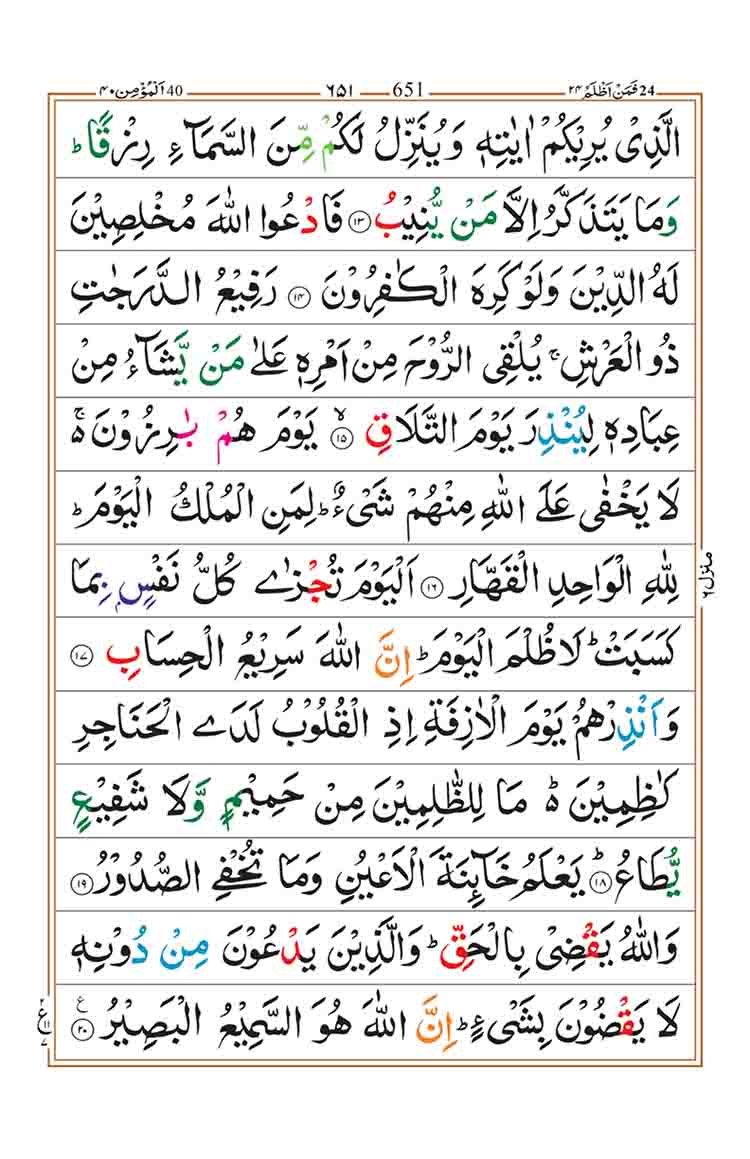 24 فَمَنْ اَظْلَمُ ۲۴ 651 ٦٥١ 40 اَلْمُؤْمِن ۴۰
الَّذِیْ یُرِیْكُمْ اٰیٰتِهٖ وَیُنَزِّلُ لَكُمْ مِّنَ السَّمَآءِ رِزْقًا ؕ
وَمَا یَتَذَكَّرُ اِلَّا مَنْ یُّنِیْبُ ۝۱۳ فَادْعُوا اللّٰهَ مُخْلِصِیْنَ
لَهُ الدِّیْنَ وَلَوْ كَرِهَ الْكٰفِرُوْنَ ۝۱۴ رَفِیْعُ الدَّرَجٰتِ
ذُو الْعَرْشِ ۚ یُلْقِی الرُّوْحَ مِنْ اَمْرِهٖ عَلٰی مَنْ یَّشَآءُ مِنْ
عِبَادِهٖ لِیُنْذِرَ یَوْمَ التَّلَاقِ ۙ۝۱۵ یَوْمَ هُمْ بٰرِزُوْنَ ۚ۬
لَا یَخْفٰی عَلَی اللّٰهِ مِنْهُمْ شَیْءٌ ؕ لِمَنِ الْمُلْكُ الْیَوْمَ ؕ
لِلّٰهِ الْوَاحِدِ الْقَهَّارِ ۝۱۶ اَلْیَوْمَ تُجْزٰی كُلُّ نَفْسٍۭ بِمَا
كَسَبَتْ ؕ لَا ظُلْمَ الْیَوْمَ ؕ اِنَّ اللّٰهَ سَرِیْعُ الْحِسَابِ ۝۱۷
وَاَنْذِرْهُمْ یَوْمَ الْاٰزِفَةِ اِذِ الْقُلُوْبُ لَدَی الْحَنَاجِرِ
كٰظِمِیْنَ ؕ۬ مَا لِلظّٰلِمِیْنَ مِنْ حَمِیْمٍ وَّلَا شَفِیْعٍ
یُّطَاعُ ؕ۝۱۸ یَعْلَمُ خَآىِٕنَةَ الْاَعْیُنِ وَمَا تُخْفِی الصُّدُوْرُ ۝۱۹
وَاللّٰهُ یَقْضِیْ بِالْحَقِّ ؕ وَالَّذِیْنَ یَدْعُوْنَ مِنْ دُوْنِهٖ
لَا یَقْضُوْنَ بِشَیْءٍ ؕ اِنَّ اللّٰهَ هُوَ السَّمِیْعُ الْبَصِیْرُ ۝۲۰ ع
منزل ٦
ع ۱۱